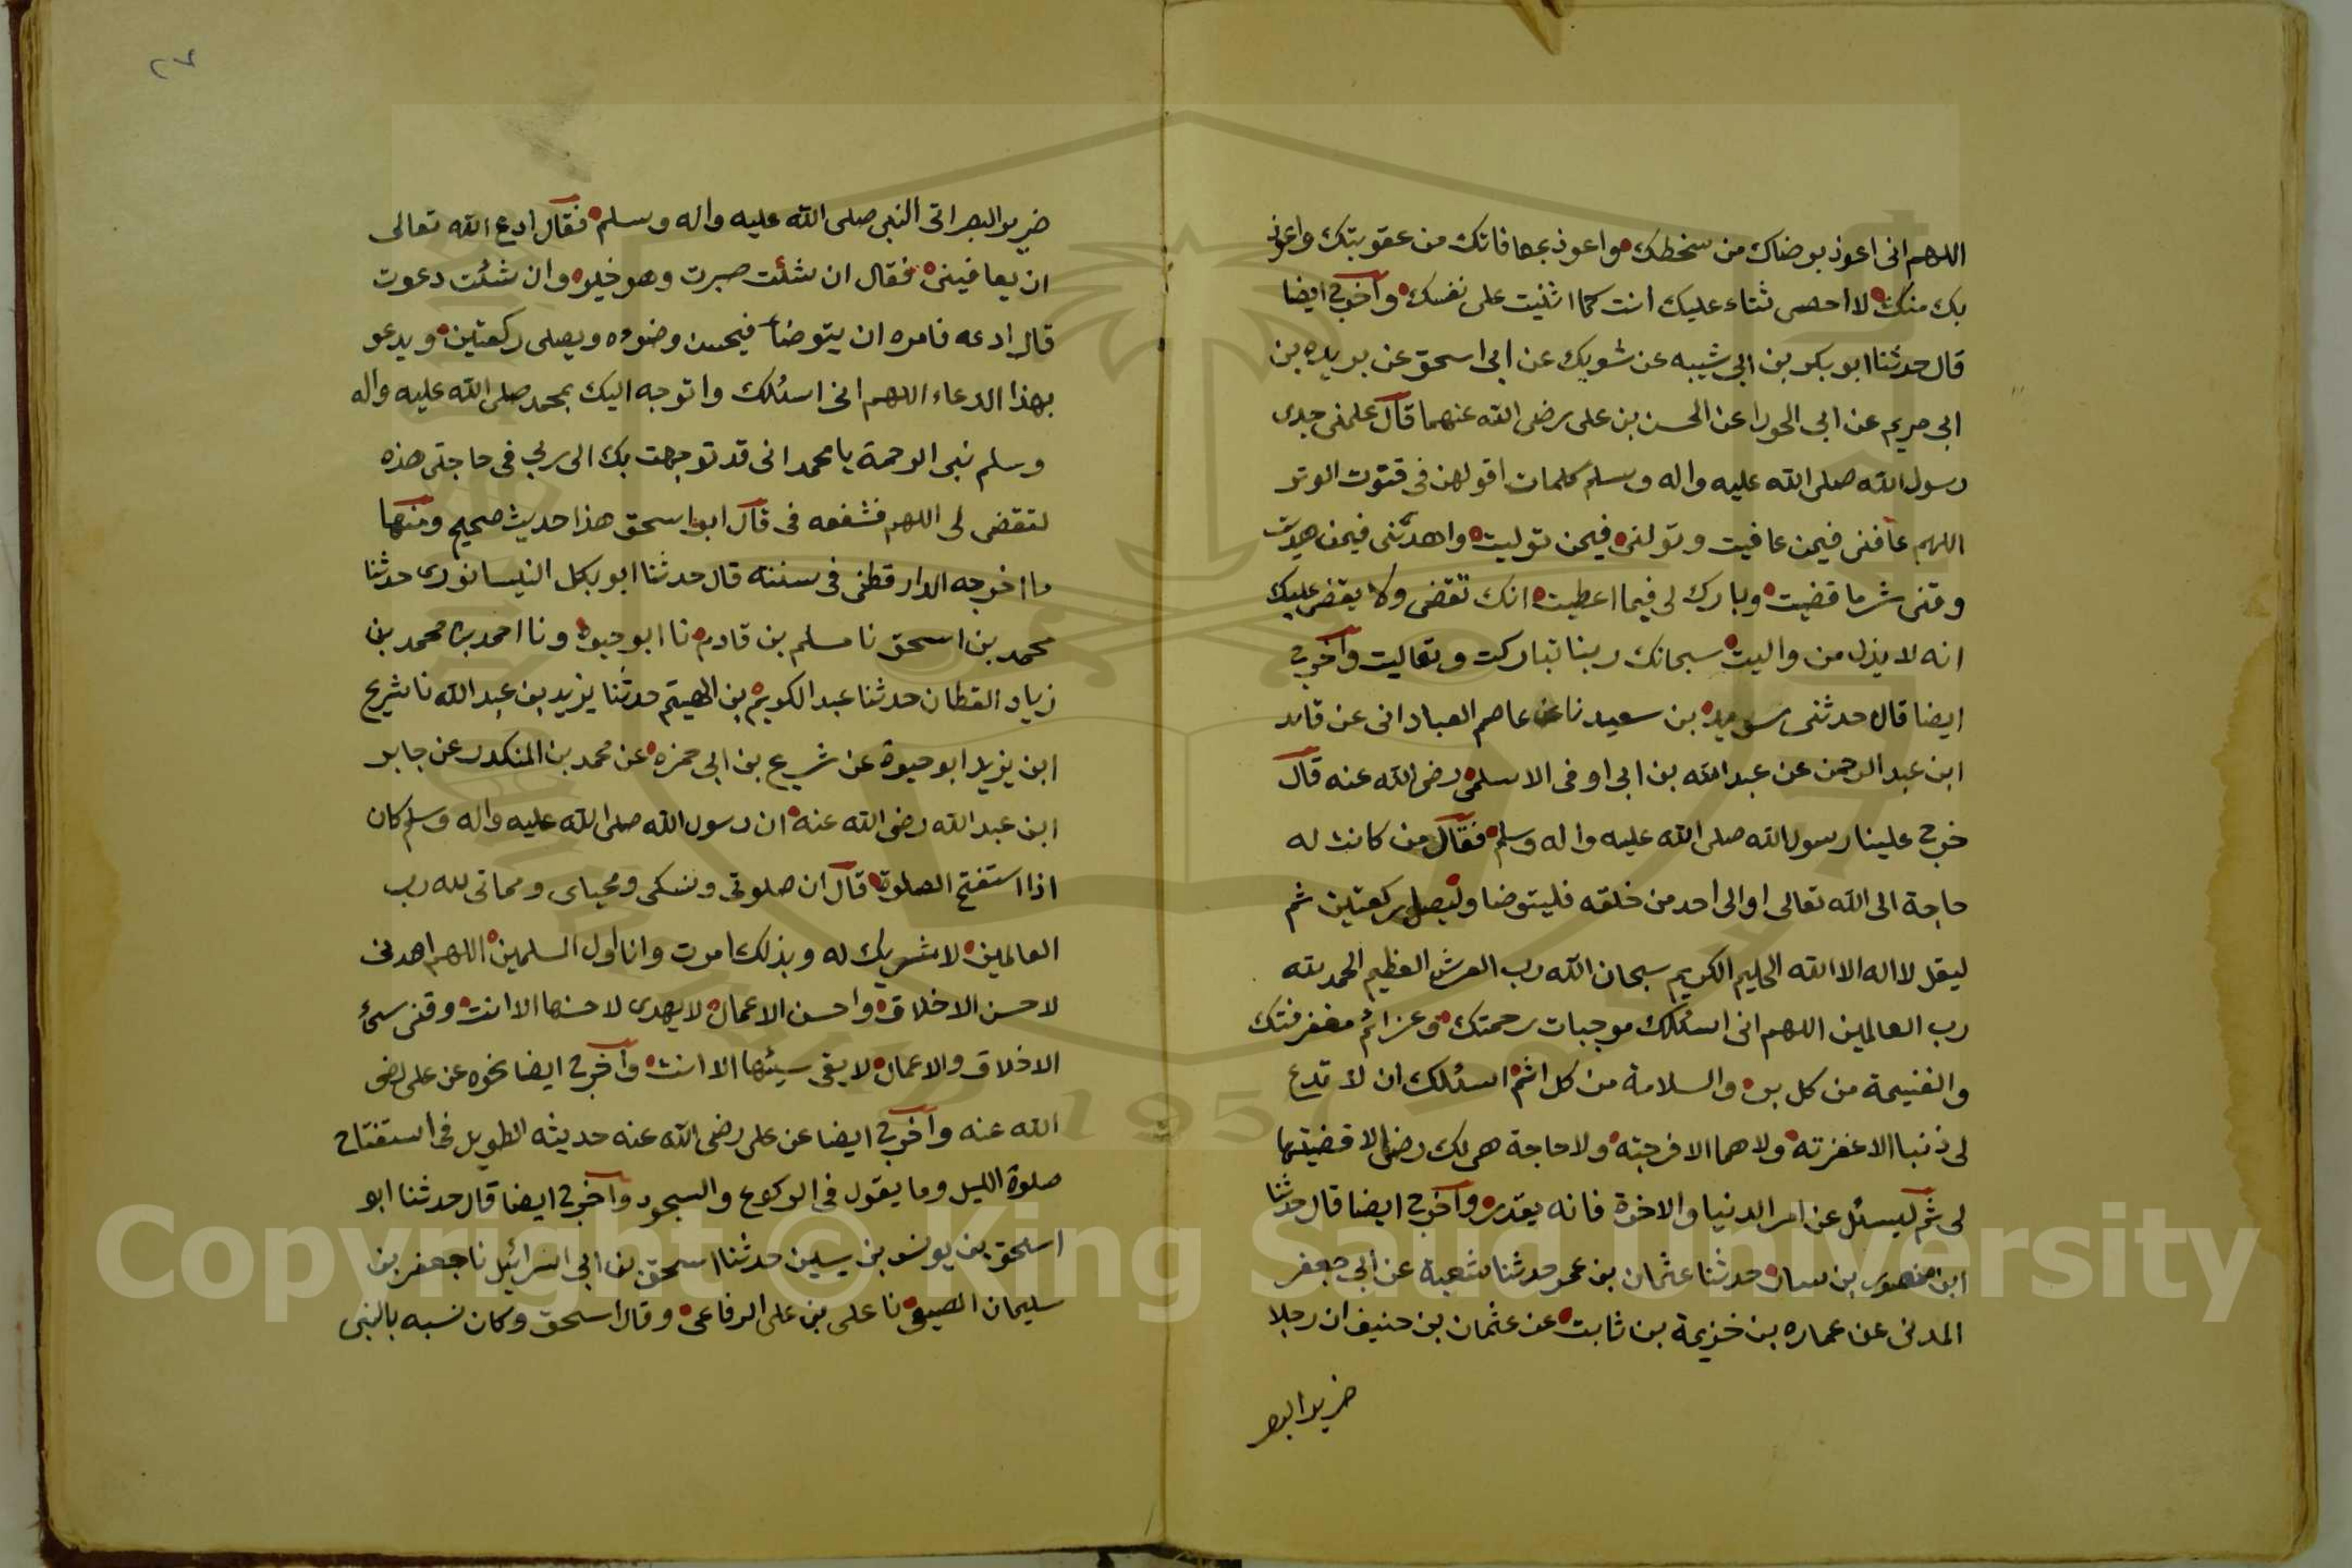 اللهم انى اعوذ برضاك من سخطك واعوذ بمعافاتك من عقوبتك واعوذ
بك منك لا احصى ثناء عليك انت كما اثنيت على نفسك واخرج ايضا
قال حدثنا ابو بكر بن ابى شيبه عن شريك عن ابى اسحق عن بريده بن
ابى مريم عن ابى الحورا عن الحسن بن على رضى الله عنهما قال علمنى جدى
رسول الله صلى الله عليه واله وسلم كلمات اقولهن فى قنوت الوتر
اللهم عافنى فيمن عافيت وتولنى فيمن توليت واهدنى فيمن هديت
وقنى شر ما قضيت وبارك لى فيما اعطيت انك تقضى ولا يقضى عليك
انه لا يذل من واليت سبحانك ربنا تباركت وتعاليت واخرج
ايضا قال حدثنى سويد بن سعيد نا عاصم العبادانى عن قائد
ابن عبد الرحمن عن عبد الله بن ابى اوفى الاسلمى رضى الله عنه قال
خرج علينا رسول الله صلى الله عليه واله وسلم فقال من كانت له
حاجة الى الله تعالى او الى احد من خلقه فليتوضا وليصل ركعتين ثم
ليقل لا اله الا الله الحليم الكريم سبحان الله رب العرش العظيم الحمد لله
رب العالمين اللهم انى اسئلك موجبات رحمتك وعزائم مغفرتك
والغنيمة من كل بر والسلامة من كل اثم اسئلك ان لا تدع
لى ذنبا الا غفرته ولا هما الا فرجته ولا حاجة هى لك رضى الا قضيتها
لى ثم ليسئل عن امر الدنيا والاخرة فانه يقدر واخرج ايضا قال حدثنا
ابن منصور بن سيار حدثنا عثمان بن عمر حدثنا شعبة عن ابى جعفر
المدنى عن عماره بن خزيمة بن ثابت عن عثمان بن حنيف ان رجلا
ضرير البصر
٢٧
ضرير البصر اتى النبى صلى الله عليه واله وسلم فقال ادع الله تعالى
ان يعافينى فقال ان شئت صبرت وهو خير وان شئت دعوت
قال ادعه فامره ان يتوضأ فيحسن وضوءه ويصلى ركعتين ويدعو
بهذا الدعاء اللهم انى اسئلك واتوجه اليك بمحمد صلى الله عليه واله
وسلم نبى الرحمة يا محمد انى قد توجهت بك الى ربى فى حاجتى هذه
لتقضى لى اللهم فشفعه فى قال ابو اسحق هذا حديث صحيح ومنها
ما اخرجه الدارقطنى فى سننه قال حدثنا ابو بكل النيسانورى حدثنا
محمد بن اسحق نا مسلم بن قادم نا ابو حيوة ونا احمد بن محمد بن
زياد القطان حدثنا عبد الكريم بن الهيثم حدثنا يزيد بن عبد الله نا شريح
ابن يزيد ابو حيوة عن شريح بن ابى حمزه عن محمد بن المنكدر عن جابر
ابن عبد الله رضى الله عنه ان رسول الله صلى الله عليه واله وسلم كان
اذا استفتح الصلوة قال ان صلوتى ونسكى ومحياى ومماتى لله رب
العالمين لا شريك له وبذلك امرت وانا اول المسلمين اللهم اهدنى
لاحسن الاخلاق واحسن الاعمال لا يهدى لاحسنها الا انت وقنى سئ
الاخلاق والاعمال لا يقى سيئها الا انت واخرج ايضا نحوه عن على رضى
الله عنه واخرج ايضا عن على رضى الله عنه حديثه الطويل فى استفتاح
صلوة الليل وما يقول فى الركوع والسجود واخرج ايضا قال حدثنا ابو
اسحق بن يونس بن يسين حدثنا اسحق بن ابى اسرائيل نا جعفر بن
سليمان الضبعى نا على بن على الرفاعى وقال اسحق وكان نسبه بالنبى
Copyright © King Saud University
1957